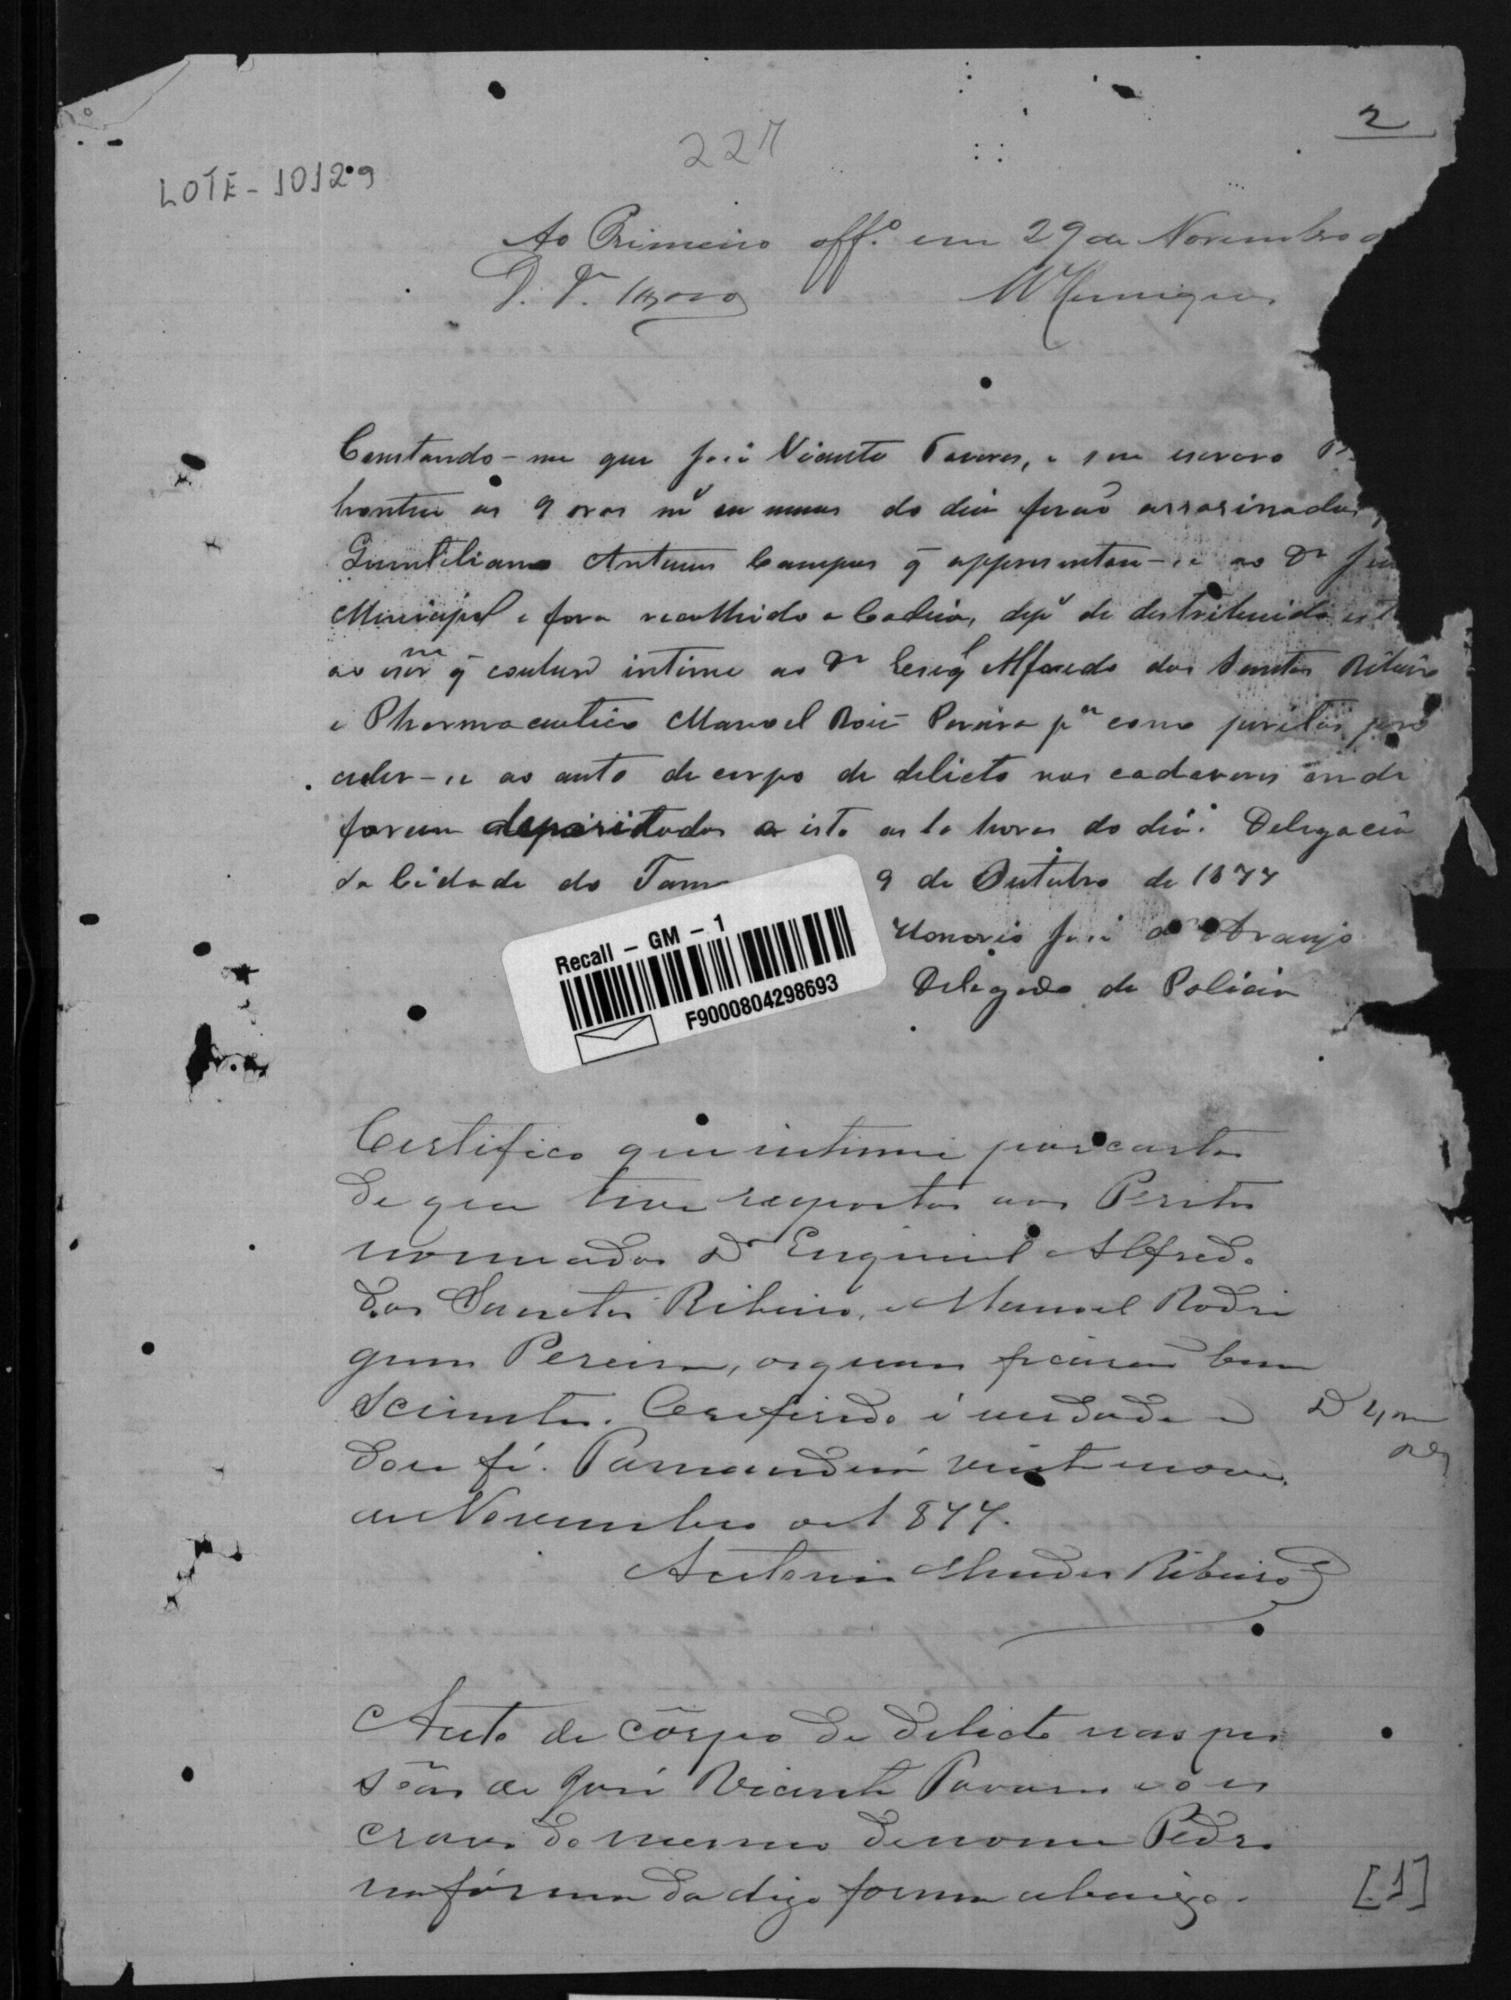 2
227
LOTE - 10129
Ao Primeiro off.º em 29 de Novembro
Constando-me que José Vicente Tavares, e seu escravo
hontem as 9 oras do dia forão assasinados
Quintiliano Antunes Campos q̃ appresentou-se ao Dr
Municipal e fora recolhido a Cadeia, de destribuido
ao q̃ intime ao Dr Alfredo dos Santos Ribeiro
e Pharmaceutico Manoel Pereira pª como peritos pro
ceder-se ao auto de corpo de delicto nos cadaveres onde
forem depositados e isto as horas do dia. Delegacia
da Cidade do 9 de Outubro de 1877
Honorio José de Araujo
Delegado de Policia
Recall - GM - 1
F9000804298693
Certifico que intimei por carta
de que tive resposta aos Peritos
nomeados Dr Alfredo
dos Santos Ribeiro, e Manoel Rodri
gues Pereira, os quaes ficarão bem
scientes. O referido é verdade e
dou fé. Tamanduá vinte nove
de Novembro de 1877.
Antonio Mendes Ribeiro
Auto de côrpo de delicto nas pes
sôas de José Vicente Tavares e o es
cravo do mesmo de nome Pedro
na fórma da digo forma abaixo.
[1]